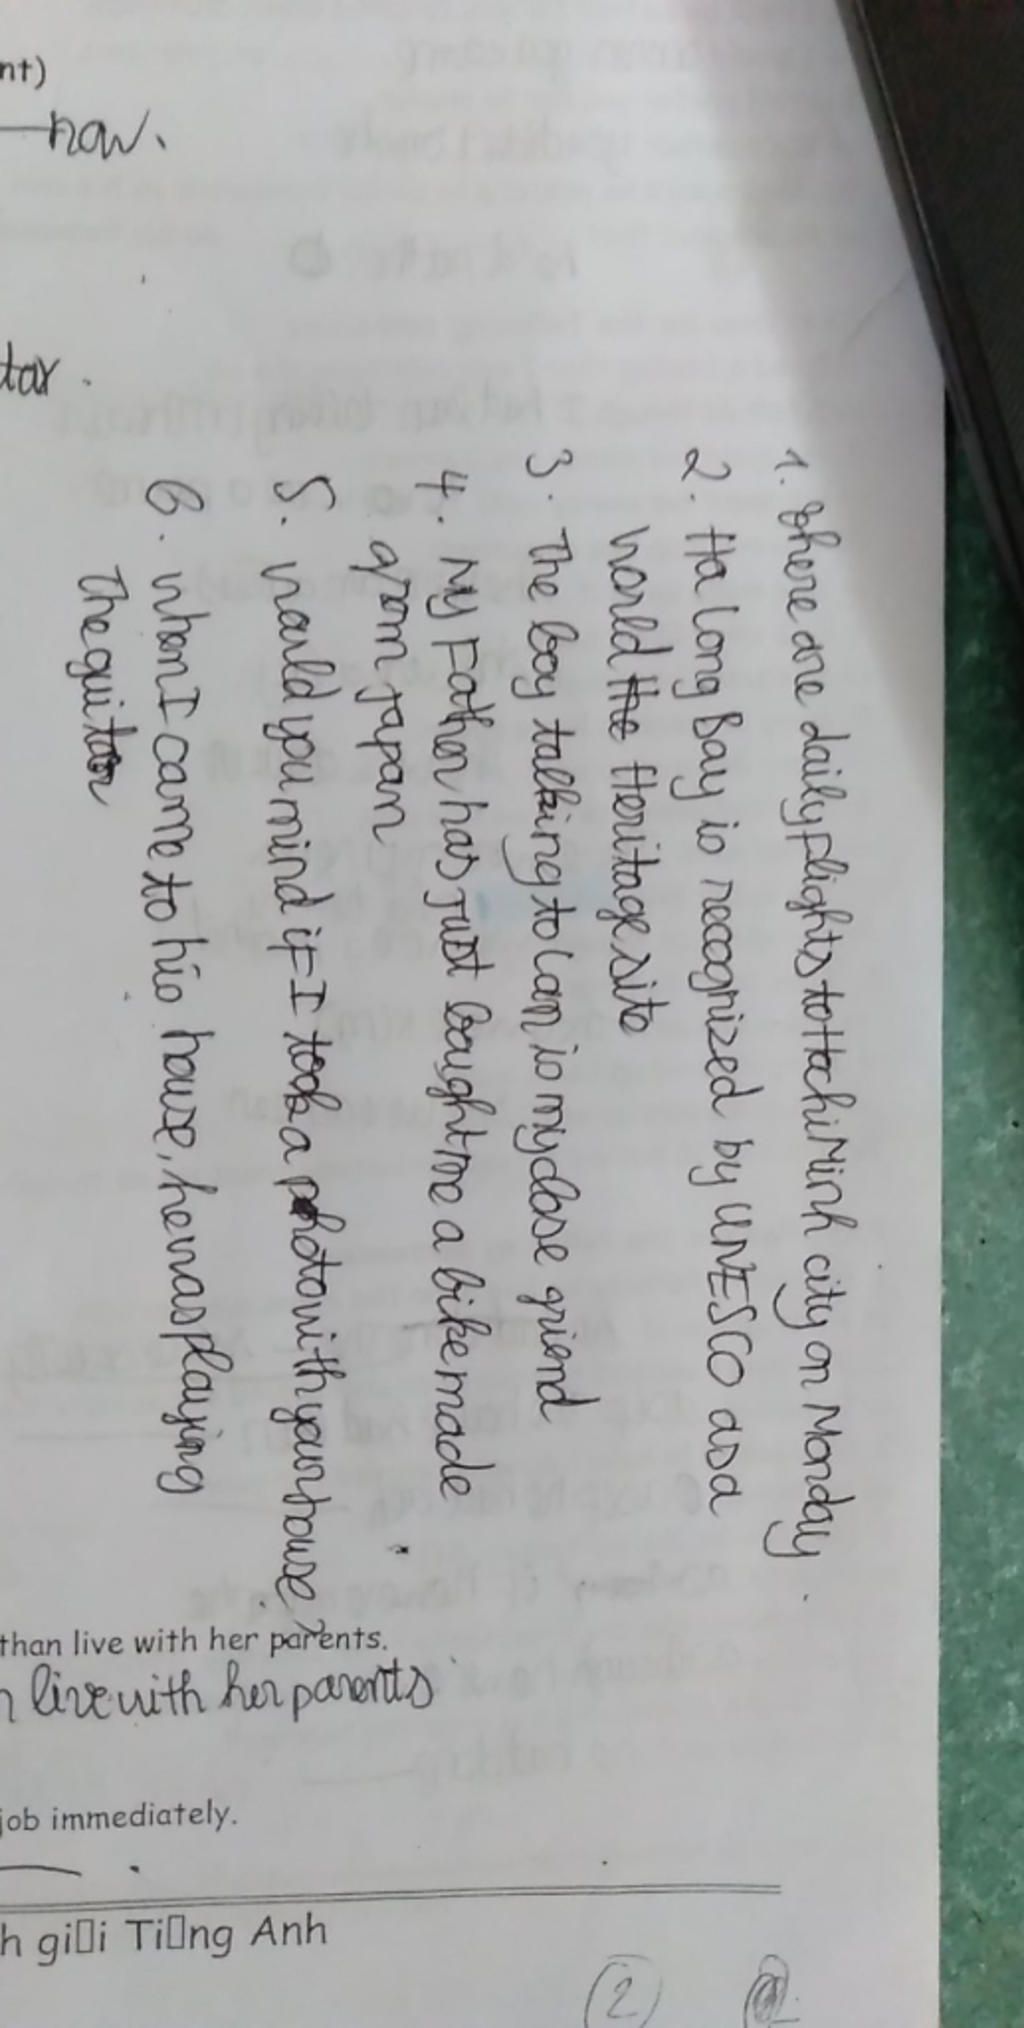 nt)
now.
tar.
1. There are daily flights to Ho chi Minh city on Monday.
2. Ha Long Bay is recognized by UNESCO as a
World the Heritage site
3. The boy talking to Lan is my close friend
4. My Father has Just bought me a bike made
from Japan
5. Would you mind if I took a photo with your house?
6. When I came to his house, he was playing
The guitar
than live with her parents.
n live with her parents
job immediately.
h gi□i Ti□ng Anh
2